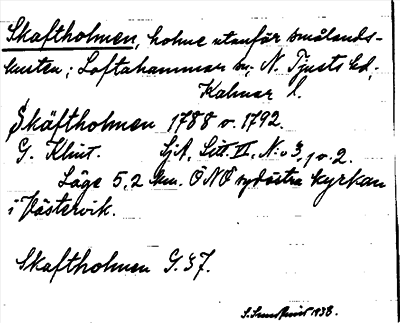 Skaftholmen, holme utanför smålands-
kusten; Loftahammar sn, N. Tjusts hd,
Kalmar l.
Skäftholmen 1788 o. 1792.
G. Klint. SjA, Litt. II, N:o 3, 1 o. 2.
Läge 5,2 km. ÖNÖ sydöstra kyrkan
i Västervik.
Skaftholmen G. 37.
1938.